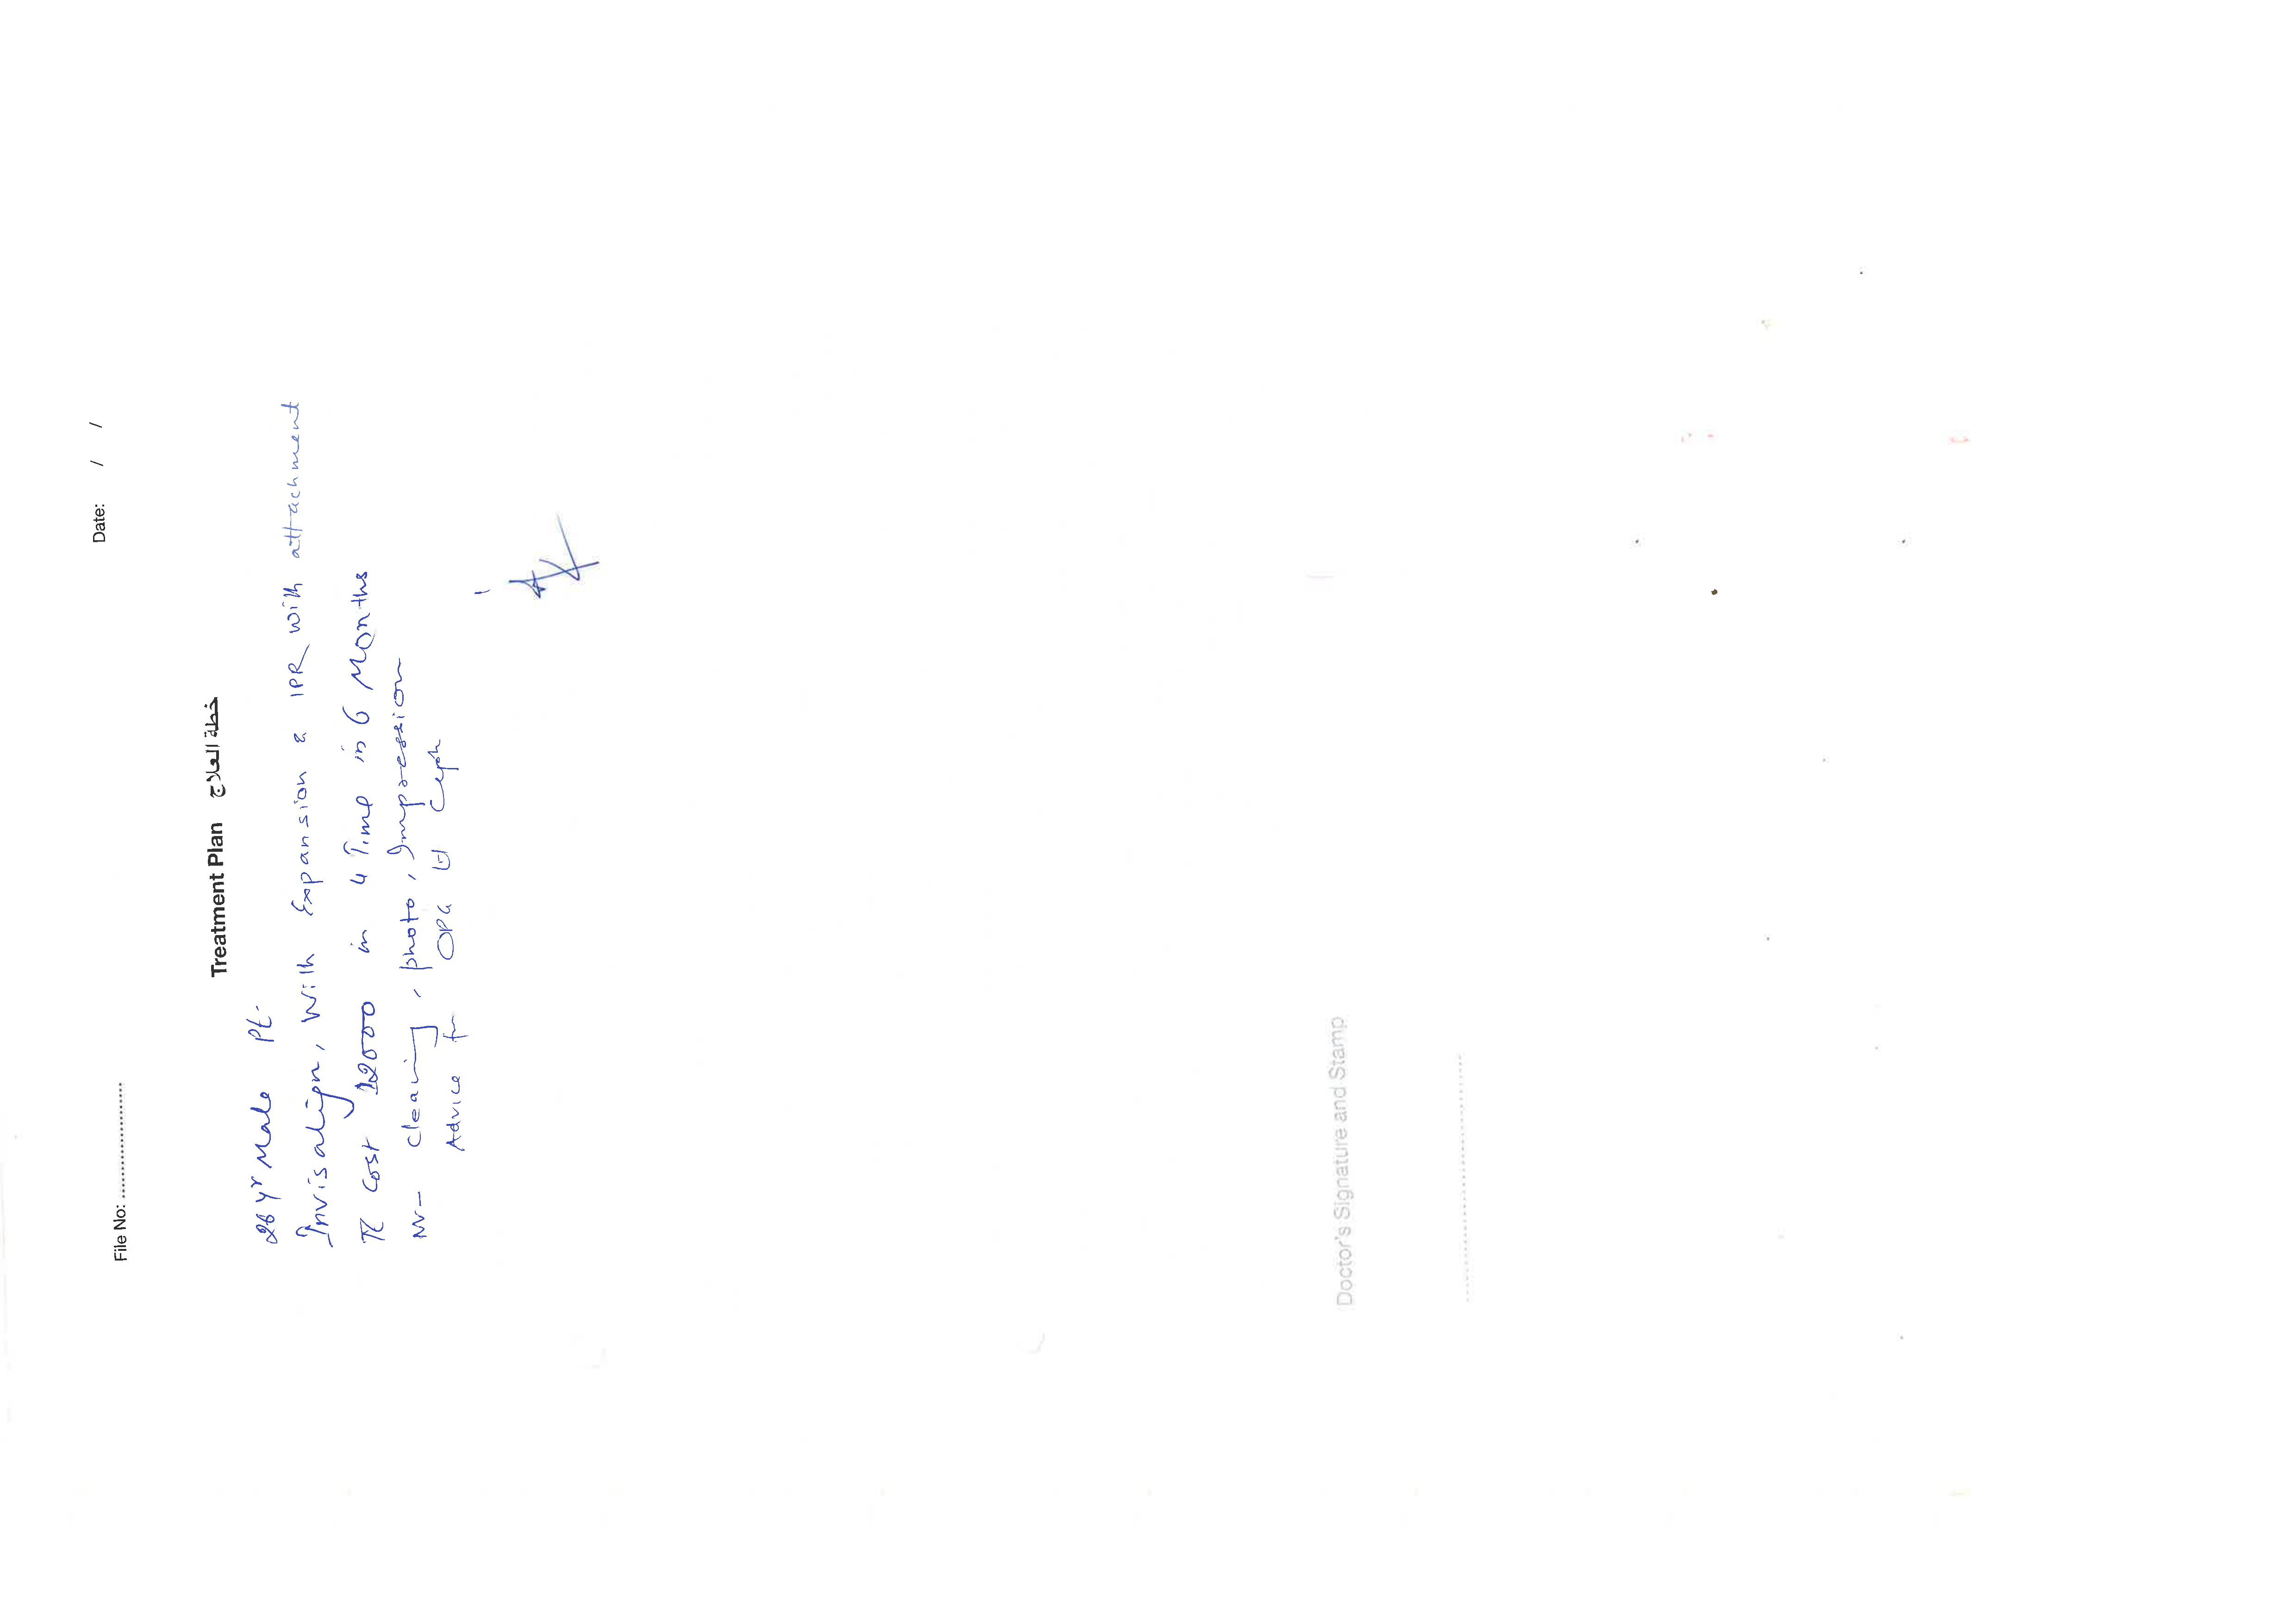 File No: ........................ Date: / /
Treatment Plan خطة العلاج
26 yr Male Pt.
Invisalign, With Expansion & IPR With attachment
Cost 12000 in 4 Time in 6 Months
NV- cleaing, photo, Impression
Advice for OPG Ceph
Doctor's Signature and Stamp